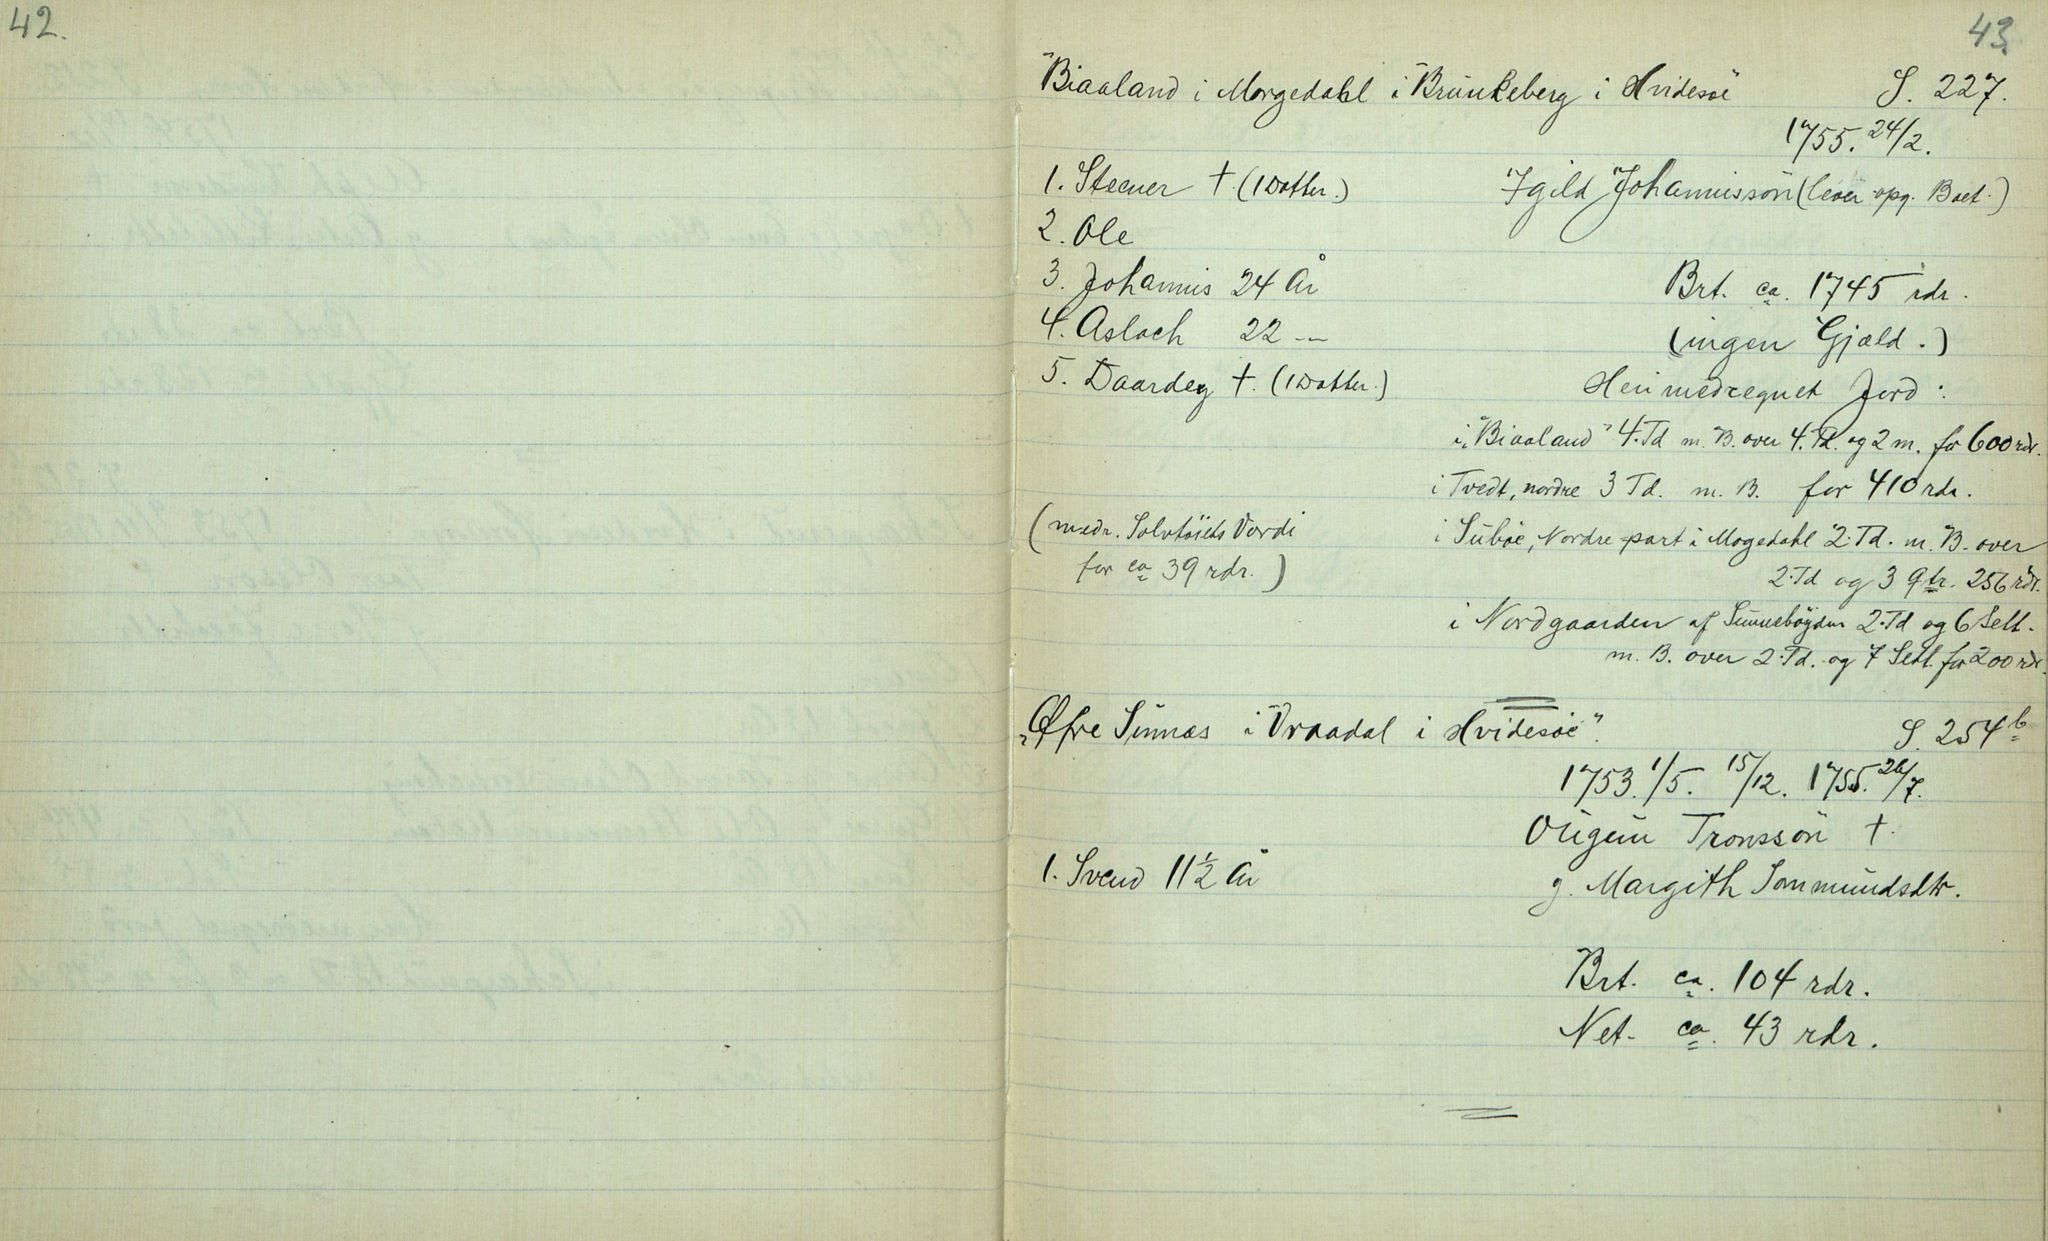 42.
43.
"Biaaland i Morgedahl i Brunkeberg i Hvidesøe S. 227.
1755. 24/2.
1. Steener †. (1 Datter.) Igild Johannissön (lever opg. Boet.)
2. Ole
3. Johannis 24 År Brt. ca. 1745 rdr.
4. Aslach 22 — (ingen Gjæld.)
5. Daardey †. (1 Datter.) Heri medregnet Jord:
i „Biaaland" 4. Td m. B. over 4. Td. og 2 m. for 600 rdr.
i Tvedt, nordre 3 Td. m. B. for 410 rdr.
(medr. Solvtöiets Værdi i Suböe, Nordre-part i Mogedahl 2. Td. m. B. over
for ca 39 rdr.) 2. Td og 3 qtr. 256 rdr.
i Nordgaarden af Sunnebøgden 2. Td og 6 Sett.
m. B. over 2. Td. og 7 Sett. for 200 rdr.
„Øfre Sinnæs i Vraadal i Hvidesöe". S. 254 b
1753. 1/5. 15/12. 1755. 26/7.
Ougün Tronssön †.
1. Svend 11 1/2 År g. Margith Sommundsdtr.
Brt. ca. 104 rdr.
Net. ca. 43 rdr.